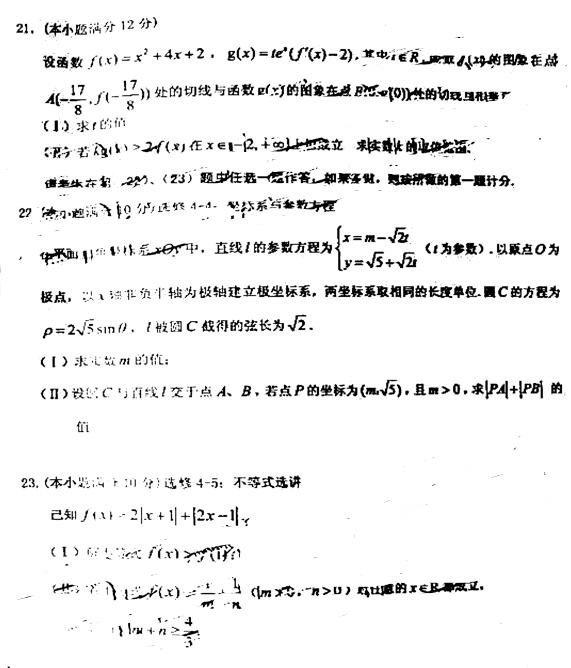 21. (本小题满分 12 分)
设函数 f(x)=x²+4x+2, g(x)=te^x(f′(x)-2), 其中 t∈R, 的图象在点
A(-17/8, f(-17/8)) 处的切线与函数 g(x) 的图象在点 B(0, g(0)) 处的切线
(Ⅰ) 求 t 的值
若 kg(x) ≥ 2f(x) 在 x∈[-2, +∞) 上恒成立 求实数 k 的取值范围.
请考生在第 (22)、(23) 题中任选一题作答, 如果多做, 则按所做的第一题计分.
22 (本小题满分 10 分) 选修 4-4: 坐标系与参数方程
在平面直角坐标系 xOy 中, 直线 l 的参数方程为 {x=m-√2t y=√5+√2t (t 为参数). 以原点 O 为
极点, 以 x 轴非负半轴为极轴建立极坐标系, 两坐标系取相同的长度单位. 圆 C 的方程为
ρ=2√5 sinθ, l 被圆 C 截得的弦长为 √2.
(Ⅰ) 求实数 m 的值;
(Ⅱ) 设圆 C 与直线 l 交于点 A、B, 若点 P 的坐标为 (m,√5), 且 m>0, 求 |PA|+|PB| 的
值
23. (本小题满分 10 分) 选修 4-5: 不等式选讲
已知 f(x)=2|x+1|+|2x-1|
(Ⅰ) f(x)>f(1);
f(x) ≥ 1/m + 1/n (m>0, n>0) 对任意的 x∈R 都成立,
m+n≥4/3